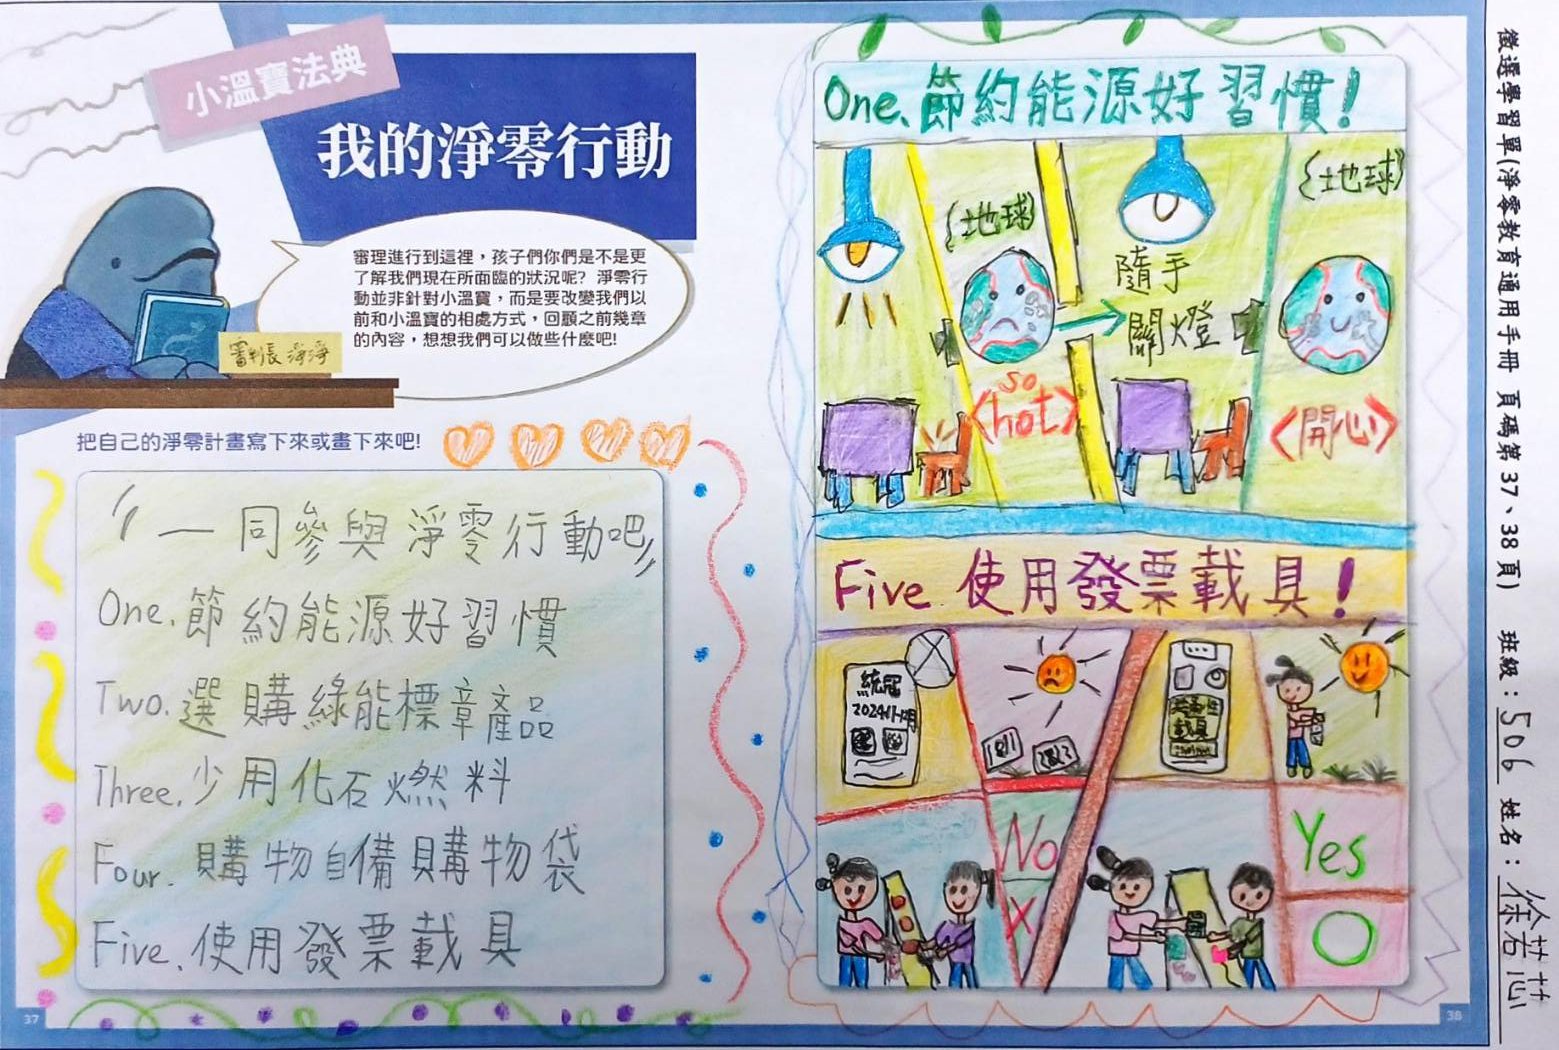 小溫寶法典
我的淨零行動
審理進行到這裡，孩子們你們是不是更
了解我們現在所面臨的狀況呢? 淨零行
動並非針對小溫寶，而是要改變我們以
前和小溫寶的相處方式，回顧之前幾章
的內容，想想我們可以做些什麼吧!
審判長 淨淨
把自己的淨零計畫寫下來或畫下來吧!
一同參與淨零行動吧
One.節約能源好習慣
Two.選購綠能標章產品
Three.少用化石燃料
Four.購物自備購物袋
Five.使用發票載具
37
One.節約能源好習慣!
{地球}
so
<hot>
隨手
關燈
{地球}
<開心>
Five 使用發票載具!
統冠
載具
No
X
Yes
38
徵選學習單(淨零教育通用手冊 頁碼第37、38頁) 班級:506 姓名:徐若芯